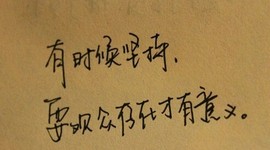 有时候坚持,
要观众存在才有意义。